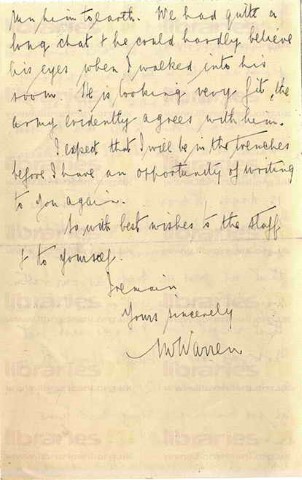 run him to earth. We had quite a
long chat & he could hardly believe
his eyes when I walked into his
room. He is looking very fit, the
army evidently agrees with him.
I expect that I will be in the trenches
before I have an opportunity of writing
to you again.
So with best wishes to the staff
& to yourself.
I remain
Yours sincerely
Warren